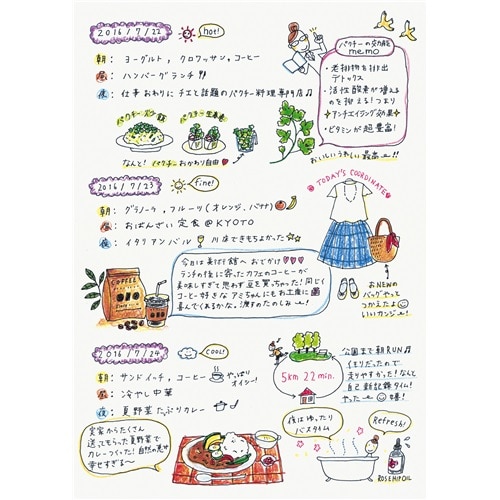 2016/7/22 hot!
朝: ヨーグルト, クロワッサン, コーヒー
昼: ハンバーグランチ!!
夜: 仕事おわりにチエと話題のパクチー料理専門店♫
パクチー
パクチー生春巻
なんと! パクチーおかわり自由
パクチーの効能
memo
・老排物を排出
デトックス
・活性酸素が増える
のを抑える! つまり
アンチエイジング効果
・ビタミンが超豊富!
おいしいうれしい最高ー!!
2016/7/23 fine!
朝: グラノーラ, フルーツ(オレンジ, バナナ)
昼: おばんざい定食@KYOTO
夜: イタリアンバル 川床できもちよかった
TODAY'S COORDINATE
おNEWの
バッグやって
つかえたよ
いいカンジー!
COFFEE
今日は美術館へおでかけ
ランチの後に寄ったカフェのコーヒーが
美味しすぎて思わず豆を買っちゃった! 同じく
コーヒー好きなアミちゃんにもお土産に
喜んでくれるかな。渡すのたのしみー!
2016/7/24 COOL!
朝: サンドイッチ, コーヒー やっぱり
オイシー!
昼: 冷やし中華
夜: 夏野菜たっぷりカレー
公園まで朝RUN♫
くもりだったので
走りやすかった! なんと
自己新記録タイム!
やったー!
5km 22min.
実家からたくさん
送ってもらった夏野菜で
カレーつくった! 自然の恵み
幸せすぎる〜
夜はゆったり
バスタイム
Refresh!
ROSEHIP OIL